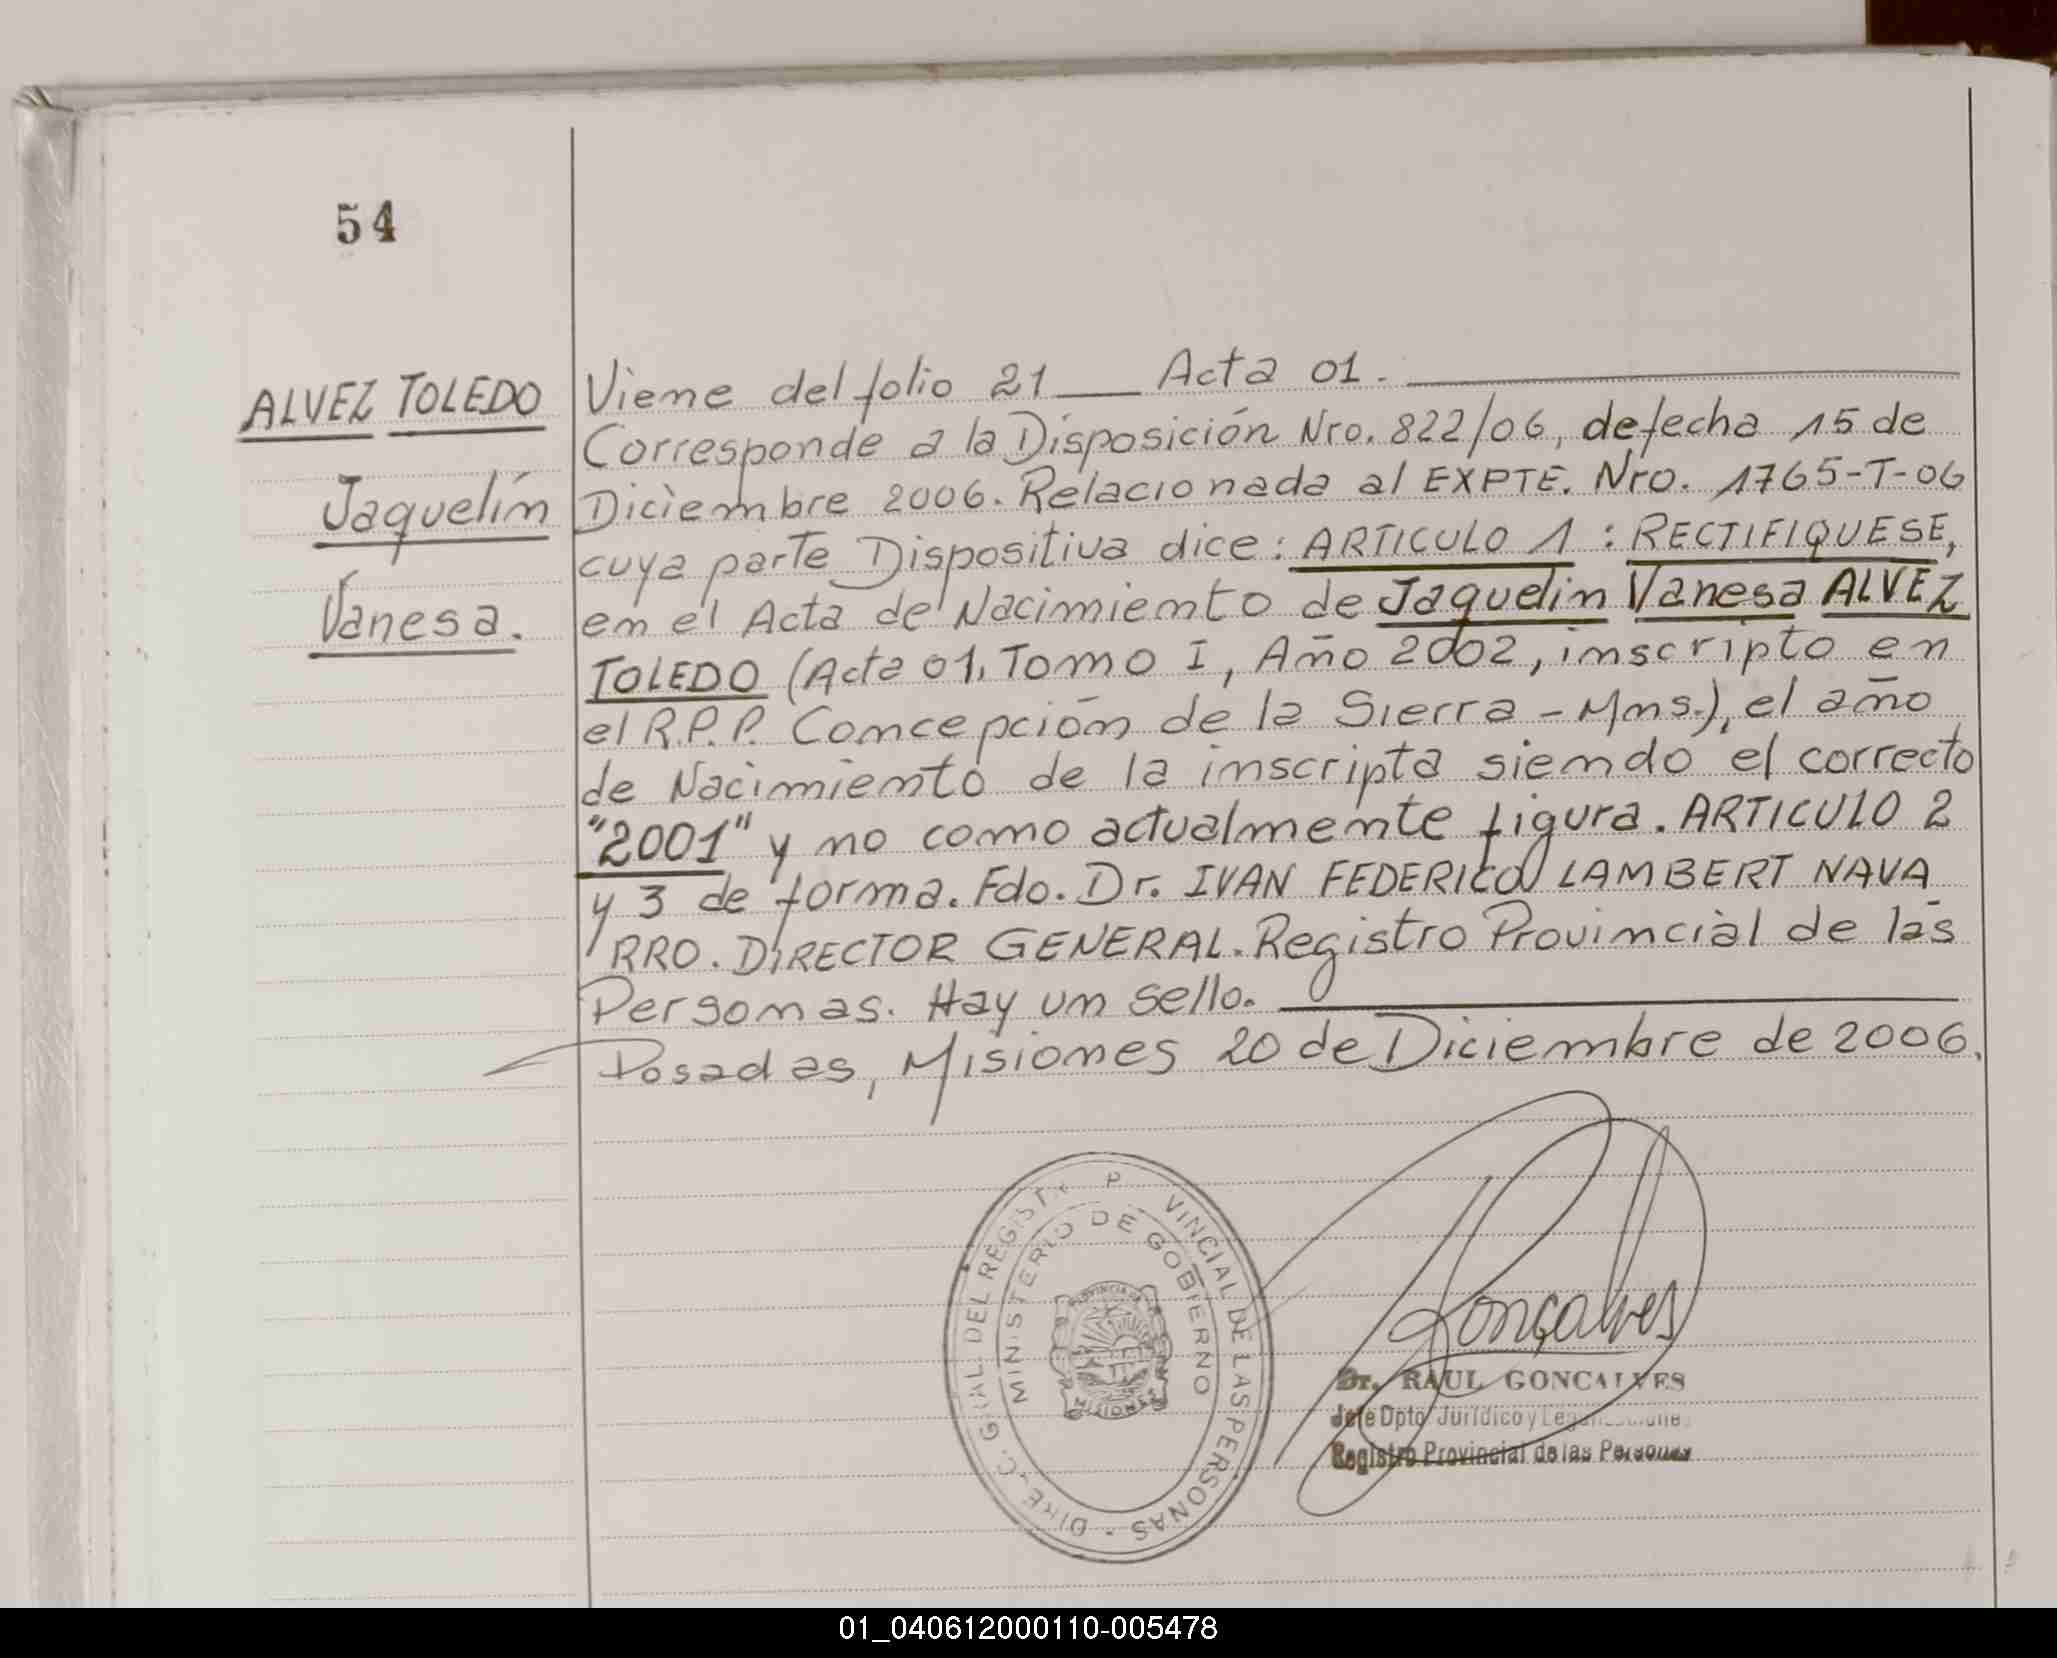 54
ALVEZ TOLEDO
Jaquelín
Vanesa.
Viene del folio 21 ___ Acta 01.
Corresponde a la Disposición Nro. 822/06, de fecha 15 de
Diciembre 2006. Relacionada al EXPTE. Nro. 1765-T-06
cuya parte Dispositiva dice: ARTICULO 1 : RECTIFIQUESE,
en el Acta de Nacimiento de Jaquelin Vanesa ALVEZ
TOLEDO (Acta 01, Tomo I, Año 2002, inscripto en
el R.P.P. Concepción de la Sierra - Mns.), el año
de Nacimiento de la inscripta siendo el correcto
"2001" y no como actualmente figura. ARTICULO 2
y 3 de forma. Fdo. Dr. IVAN FEDERICO LAMBERT NAVA
RRO. DIRECTOR GENERAL. Registro Provincial de las
Personas. Hay un sello.
Posadas, Misiones 20 de Diciembre de 2006.
GRAL. DEL REGIST P VINCIAL DE LAS PERSONAS
MINISTERIO DE GOBIERNO
PROVINCIA DE
MISIONES
Gonçalves
Dr. RAUL GONCALVES
Jefe Dpto Jurídico y
Registro Provincial de las Personas
01_040612000110-005478